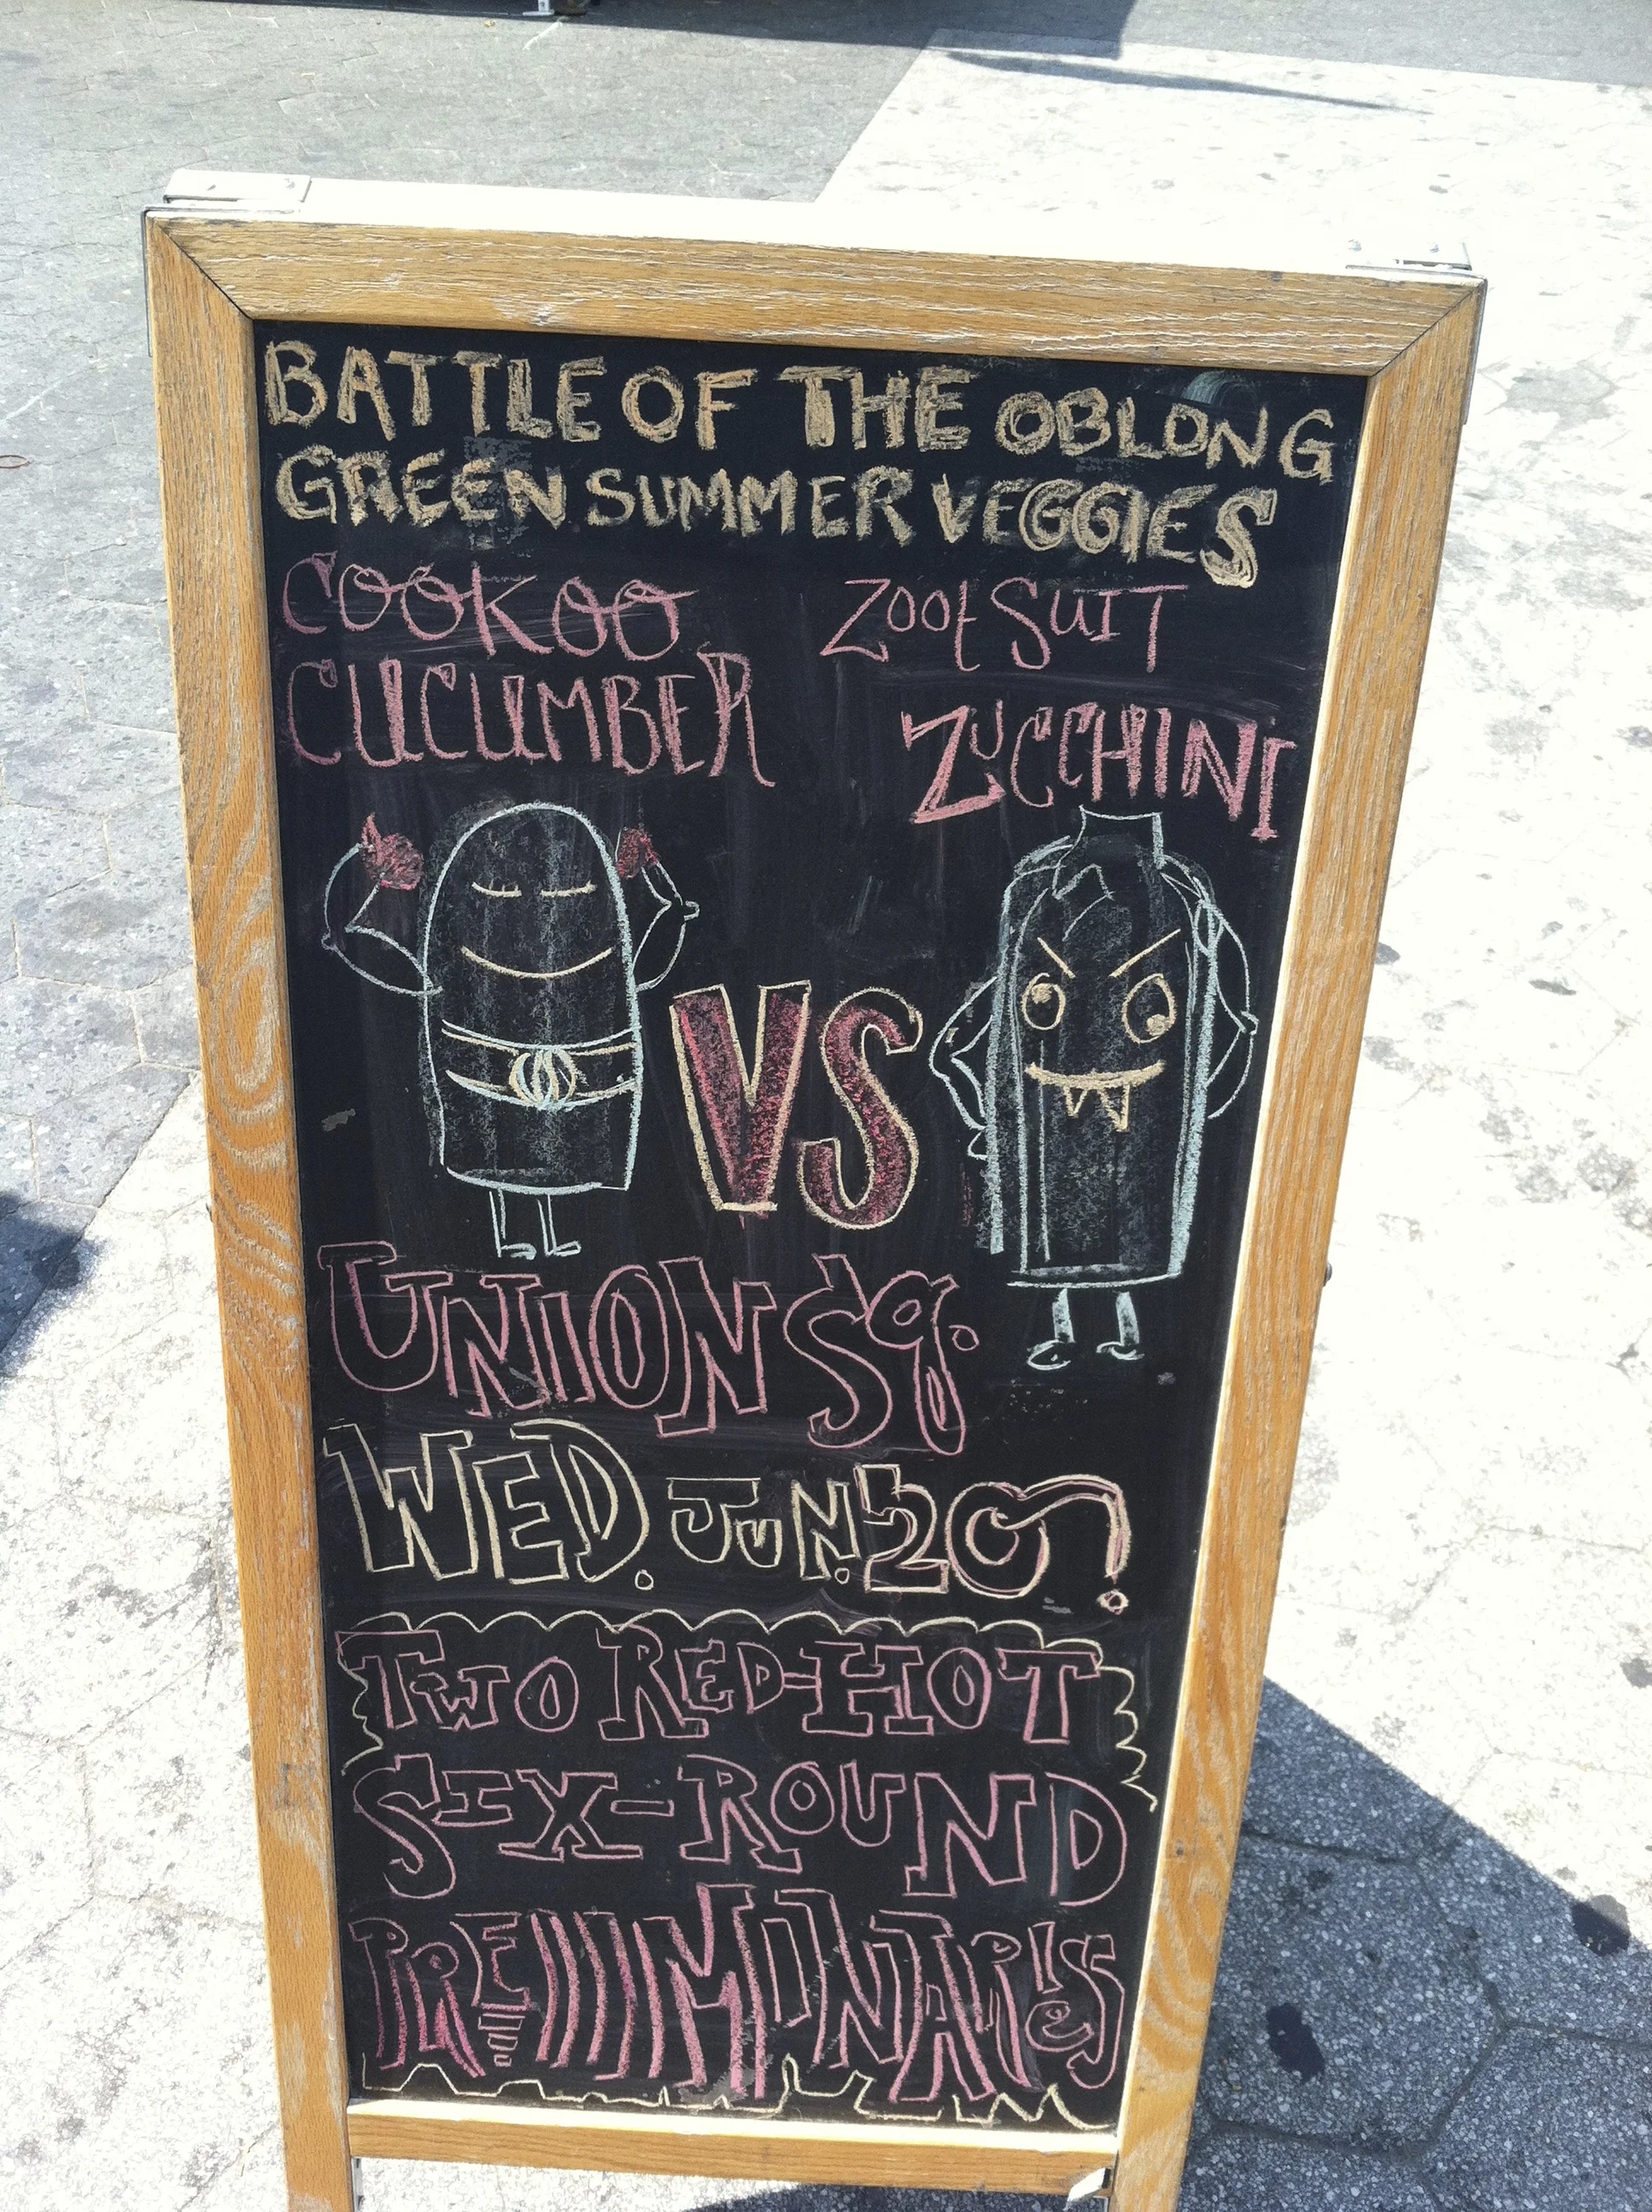 BATTLE OF THE OBLONG
GREEN SUMMER VEGGIES
COOKOO
CUCUMBER
Zoot SUIT
ZUCCHINI
VS
UNION Sq.
WED. JUN. 20!
TWO RED-HOT
SIX-ROUND